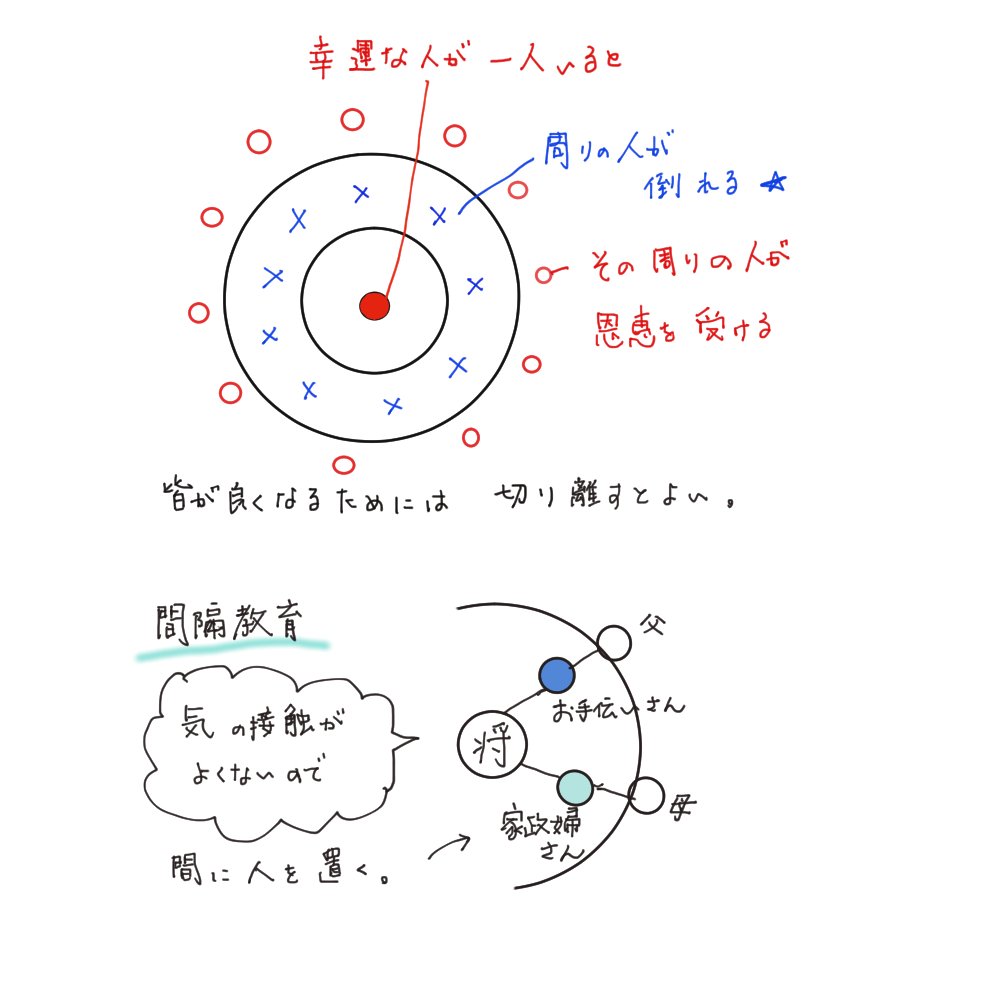 幸運な人が一人いると
周りの人が
倒れる☆
その周りの人が
恩恵を受ける
皆が良くなるためには 切り離すとよい。
間隔教育
気の接触が
よくないので
間に人を置く。
父
お手伝いさん
将
母
家政婦
さん